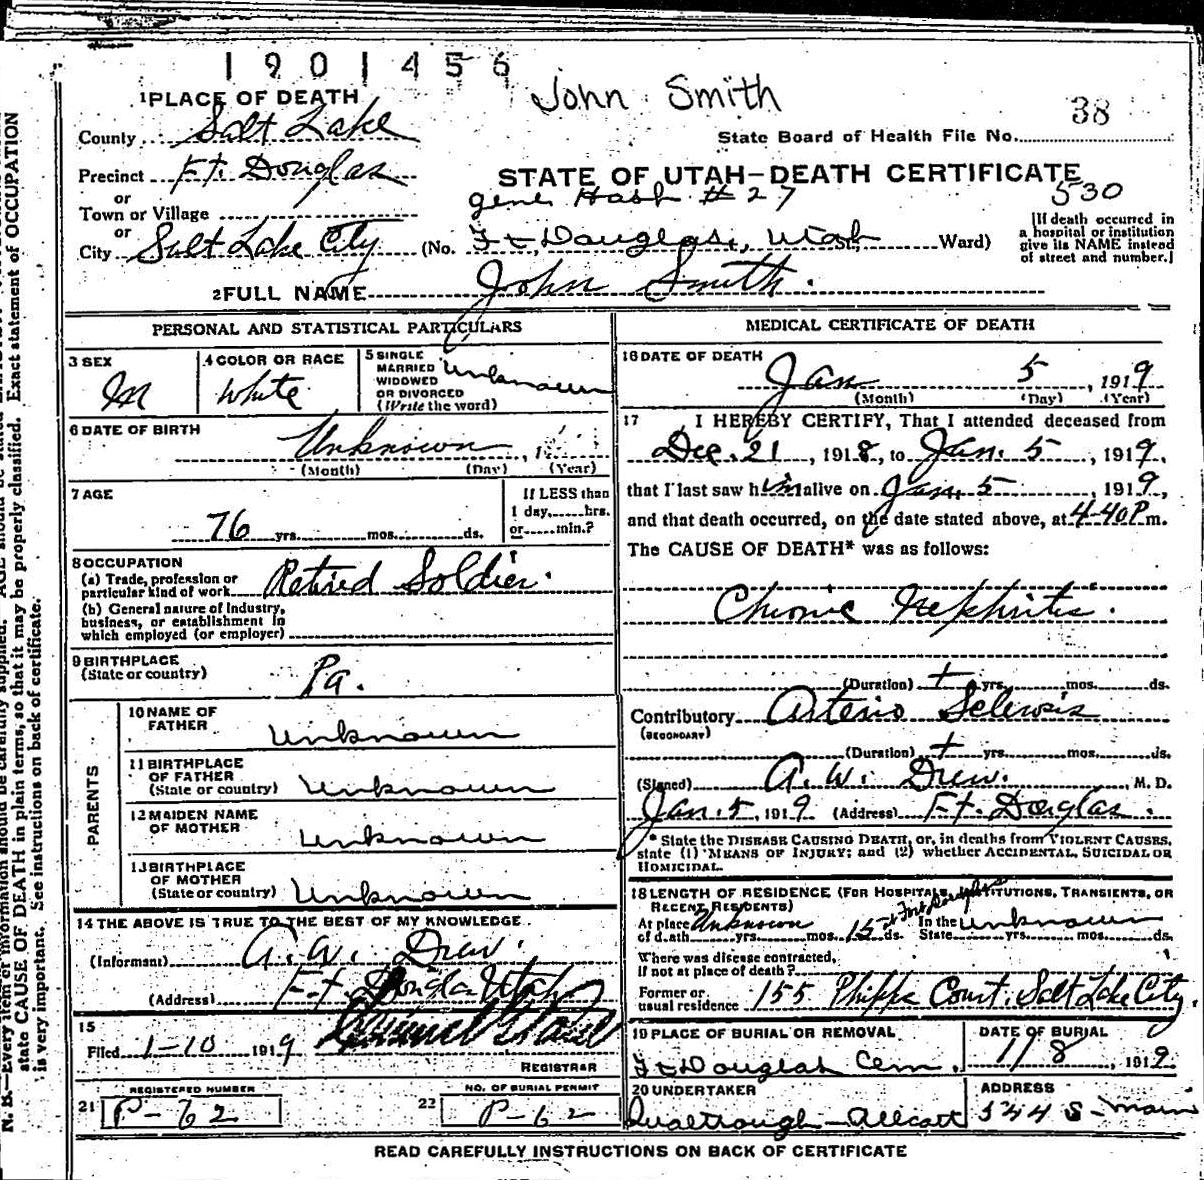 1901456
John Smith
1 PLACE OF DEATH
38
County Salt Lake
State Board of Health File No.
Precinct Ft. Douglas
STATE OF UTAH-DEATH CERTIFICATE
or
Town or Village
530
or
City Salt Lake City (No. Ft Douglas, Utah Ward)
[If death occurred in
a hospital or institution
give its NAME instead
of street and number.]
2 FULL NAME John Smith.
PERSONAL AND STATISTICAL PARTICULARS
3 SEX M
4 COLOR OR RACE White
5 SINGLE
MARRIED
WIDOWED
OR DIVORCED
(Write the word)
Unknown
6 DATE OF BIRTH
Unknown, 1
(Month) (Day) (Year)
7 AGE
76 yrs. mos. ds.
If LESS than
1 day, hrs.
or min.?
8 OCCUPATION
(a) Trade, profession or
particular kind of work Retired Soldier.
(b) General nature of Industry,
business, or establishment in
which employed (or employer)
9 BIRTHPLACE
(State or country) Pa.
PARENTS
10 NAME OF
FATHER Unknown
11 BIRTHPLACE
OF FATHER
(State or country) Unknown
12 MAIDEN NAME
OF MOTHER Unknown
13 BIRTHPLACE
OF MOTHER
(State or country) Unknown
14 THE ABOVE IS TRUE TO THE BEST OF MY KNOWLEDGE
(Informant) A. W. Drew.
(Address) Ft Douglas Utah
15
Filed 1-10 1919
REGISTRAR
REGISTERED NUMBER
21 P-62
NO. OF BURIAL PERMIT
22 P-62
MEDICAL CERTIFICATE OF DEATH
16 DATE OF DEATH
Jan 5, 1919
(Month) (Day) (Year)
17 I HEREBY CERTIFY, That I attended deceased from
Dec. 21, 1918, to Jan. 5, 1919,
that I last saw him alive on Jan. 5, 1919,
and that death occurred, on the date stated above, at 4-40 P m.
The CAUSE OF DEATH* was as follows:
Chronic Nephritis.
(Duration) + yrs. mos. ds.
Contributory Arterio Sclerosis
(SECONDARY)
(Duration) + yrs. mos. ds.
(Signed) A. W. Drew. M. D.
Jan. 5, 1919 (Address) Ft. Douglas.
* State the DISEASE CAUSING DEATH, or, in deaths from VIOLENT CAUSES,
state (1) MEANS OF INJURY; and (2) whether ACCIDENTAL, SUICIDAL OR
HOMICIDAL.
18 LENGTH OF RESIDENCE (FOR HOSPITALS, INSTITUTIONS, TRANSIENTS, OR
RECENT RESIDENTS)
At place Unknown In the Unknown
of death yrs. mos. 15 ds. State yrs. mos. ds.
Where was disease contracted,
if not at place of death?
Former or
usual residence 155 Phipps Court. Salt Lake City.
19 PLACE OF BURIAL OR REMOVAL
Ft Douglas Cem.
DATE OF BURIAL
1/8, 1919
20 UNDERTAKER
ADDRESS
544 S-Main
READ CAREFULLY INSTRUCTIONS ON BACK OF CERTIFICATE
state CAUSE OF DEATH in plain terms, so that it may be properly classified. Exact statement of OCCUPATION
is very important. See instructions on back of certificate.